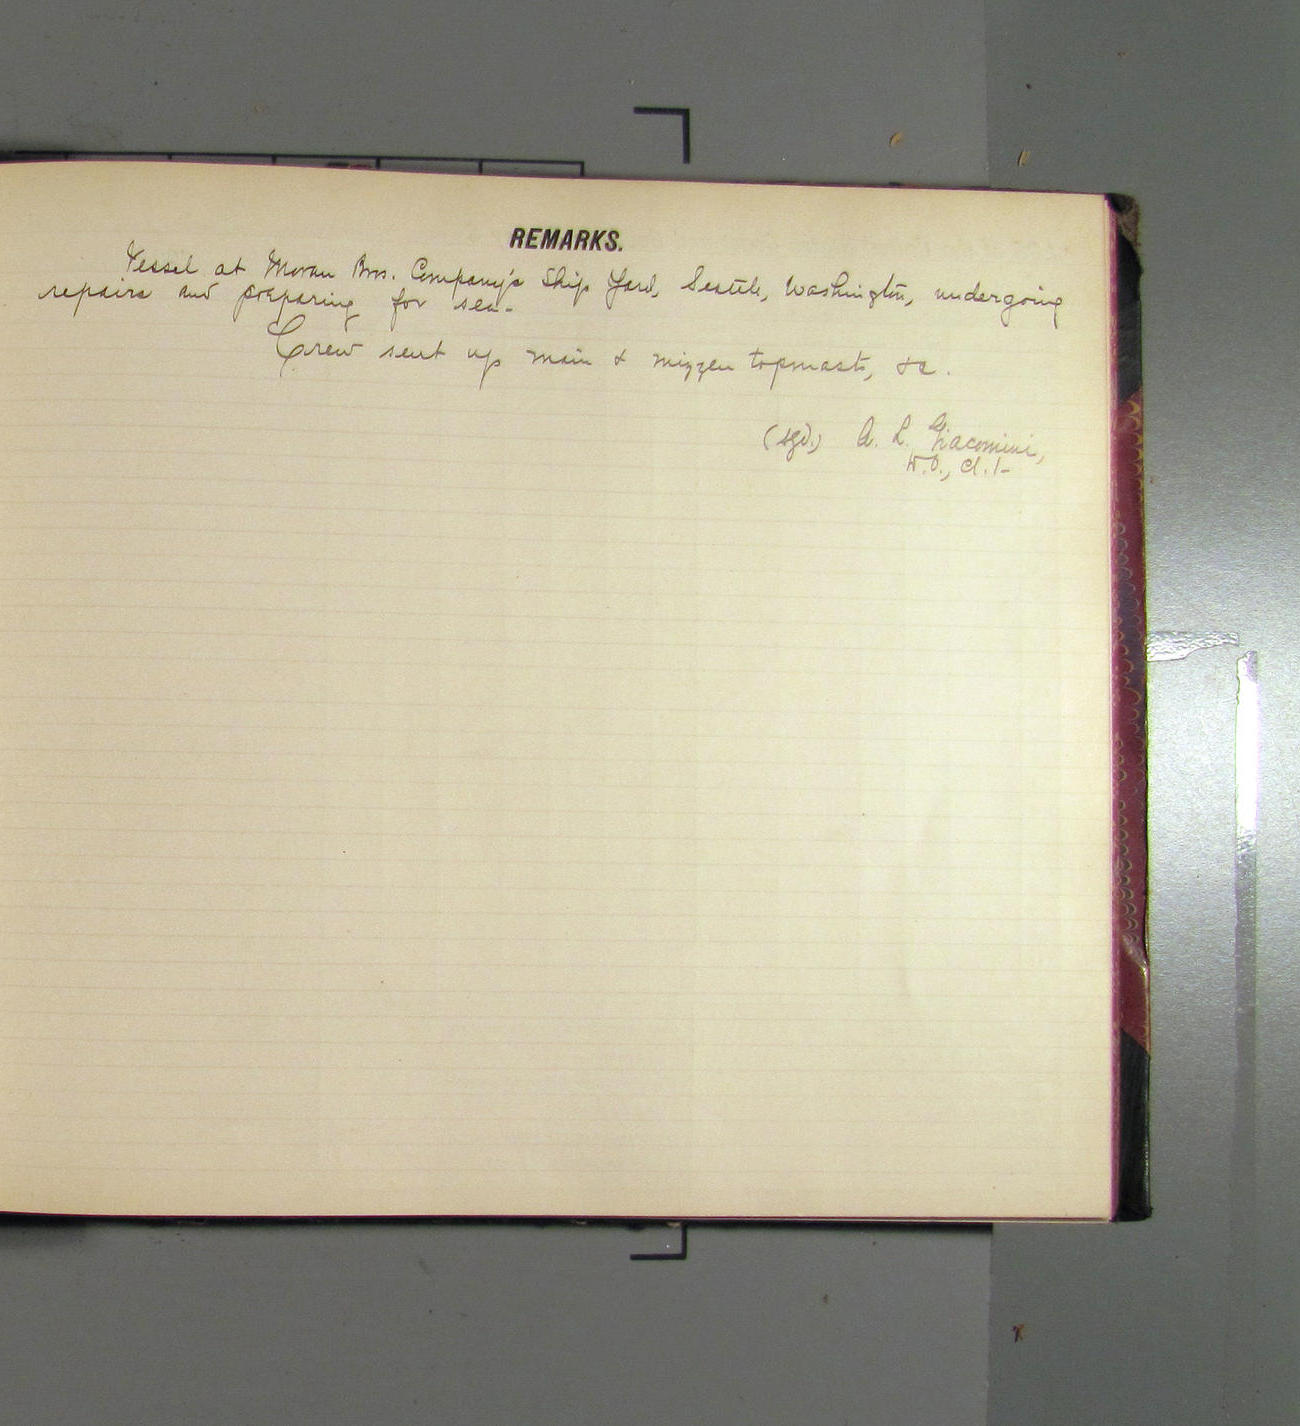 REMARKS.
Vessel at Moran Bros. Company's Ship Yard, Seattle, Washington, undergoing
repairs and preparing for sea-
Crew sent up main & mizzen topmasts, &c.
(sgd.) A. L. Giacomini,
W.O., Cl. 1-